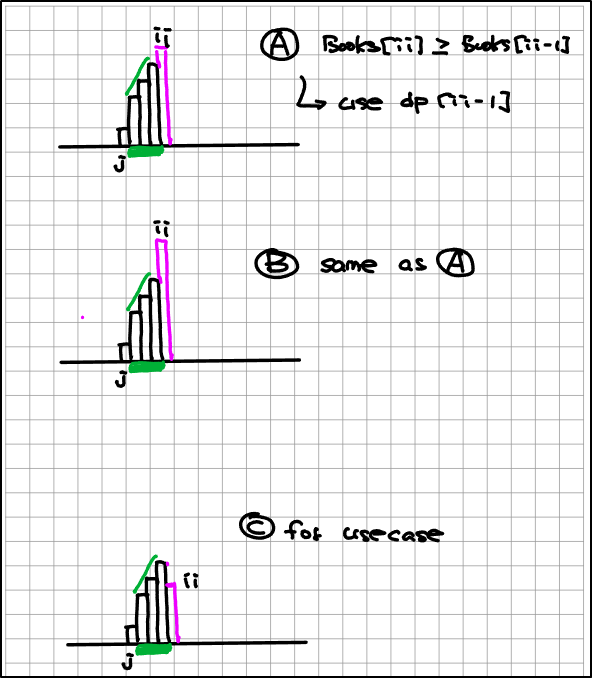 ii
Ⓐ Books[ii] ≥ Books[ii-1]
↳ use dp[ii-1]
j
ii
Ⓑ same as Ⓐ
j
Ⓒ for usecase
ii
j